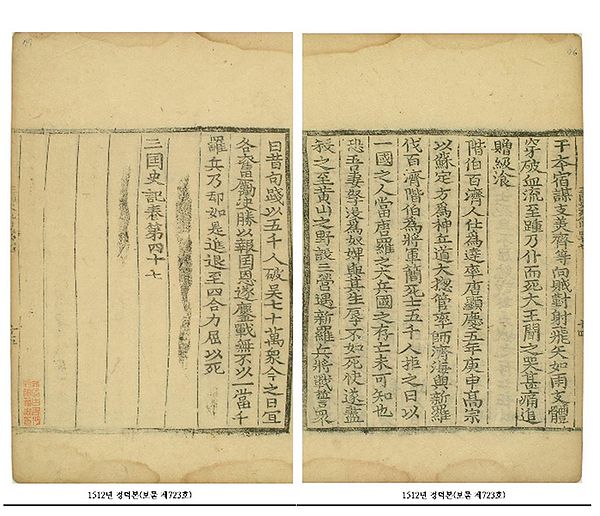 干本宿謀支美齊等向賊對射飛矢如雨支體
穿破血流至踵乃仆而死大王聞之哭甚痛追
贈級湌
階伯百濟人仕爲達率唐顯慶五年庚申髙宗
以蘇定方爲神丘道大揔管率師濟海與新羅
伐百濟階伯爲將軍簡死士五千人拒之曰以
一國之人當唐羅之大兵國之存亡未可知也
恐吾妻孥没爲奴婢與其生辱不如死快遂盡
殺之至黄山之野設三營遇新羅兵將戰誓衆
曰昔句踐以五千人破吳七十萬衆今之日宜
各奮勵決勝以報国恩遂鏖戰無不以一當千
羅兵乃却如是進退至四合力屈以死
三国史記卷第四十七
1512년 정덕본(보물 제723호)
1512년 정덕본(보물 제723호)